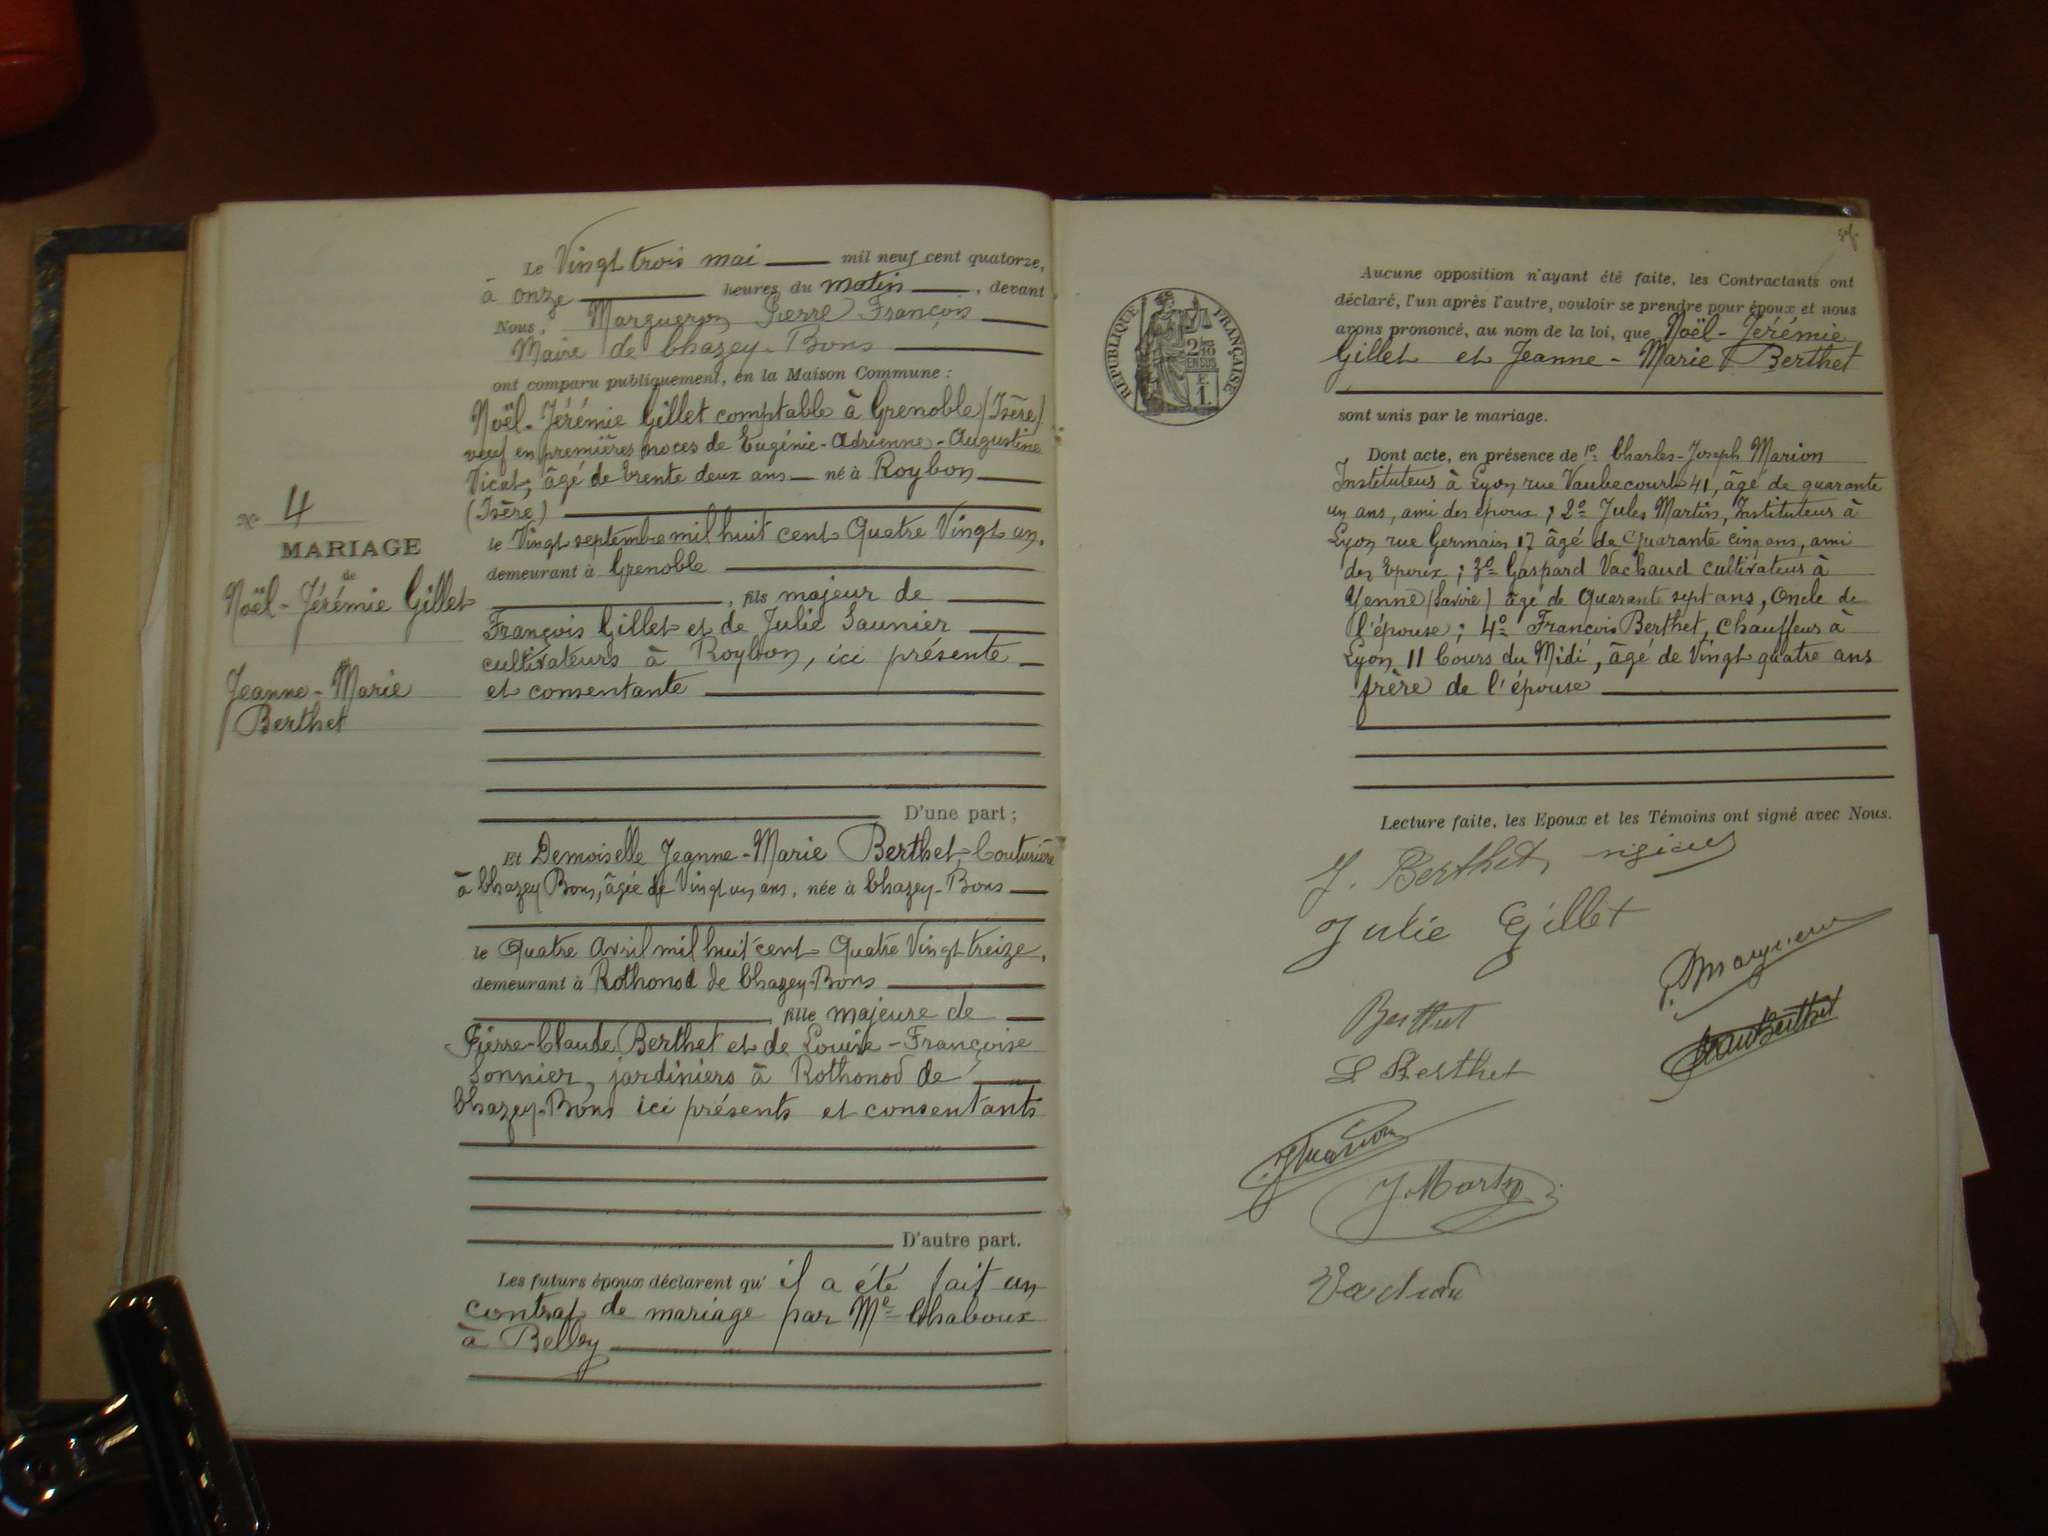 N° 4
MARIAGE
de
Noël-Jérémie Gillet
Jeanne-Marie
Berthet
Le Vingt trois mai mil neuf cent quatorze,
à onze heures du matin, devant
Nous, Margueron Pierre François
Maire de Chazey-Bons
ont comparu publiquement, en la Maison Commune :
Noël-Jérémie Gillet comptable à Grenoble (Isère)
veuf en premières noces de Eugénie-Adrienne-Augustine
Vicat, âgé de trente deux ans né à Roybon
(Isère)
le Vingt septembre mil huit cent Quatre Vingt un,
demeurant à Grenoble
, fils majeur de
François Gillet et de Julie Saunier
cultivateurs à Roybon, ici présente
et consentante
D'une part ;
Et Demoiselle Jeanne-Marie Berthet, Couturière
à Chazey Bons, âgée de Vingt un ans, née à Chazey-Bons
le Quatre Avril mil huit cent Quatre Vingt treize,
demeurant à Rothonod de Chazey-Bons
, fille majeure de
Pierre-Claude Berthet et de Louise-Françoise
Sonnier, jardiniers à Rothonod de
Chazey-Bons ici présents et consentants
D'autre part.
Les futurs époux déclarent qu' il a été fait un
contrat de mariage par Me Chaboux
à Belley
RÉPUBLIQUE FRANÇAISE
2/10
EN SUS
1.
Aucune opposition n'ayant été faite, les Contractants ont
déclaré, l'un après l'autre, vouloir se prendre pour époux et nous
avons prononcé, au nom de la loi, que Noël-Jérémie
Gillet et Jeanne-Marie Berthet
sont unis par le mariage.
Dont acte, en présence de 1° Charles-Joseph Marion
Instituteur à Lyon rue Vaubecourt 41, âgé de quarante
un ans, ami des époux ; 2° Jules Martin, Instituteur à
Lyon rue Germain 17 âgé de Quarante cinq ans, ami
des Epoux ; 3° Gaspard Vachaud cultivateur à
Yenne (Savoie) âgé de Quarante sept ans, Oncle de
l'épouse ; 4° François Berthet, Chauffeur à
Lyon 11 Cours du Midi, âgé de Vingt quatre ans
frère de l'épouse
Lecture faite, les Epoux et les Témoins ont signé avec Nous.
J. Berthet
Julie Gillet
P. Margueron
Berthet
L Berthet
Berthet
Marion
J. Martin